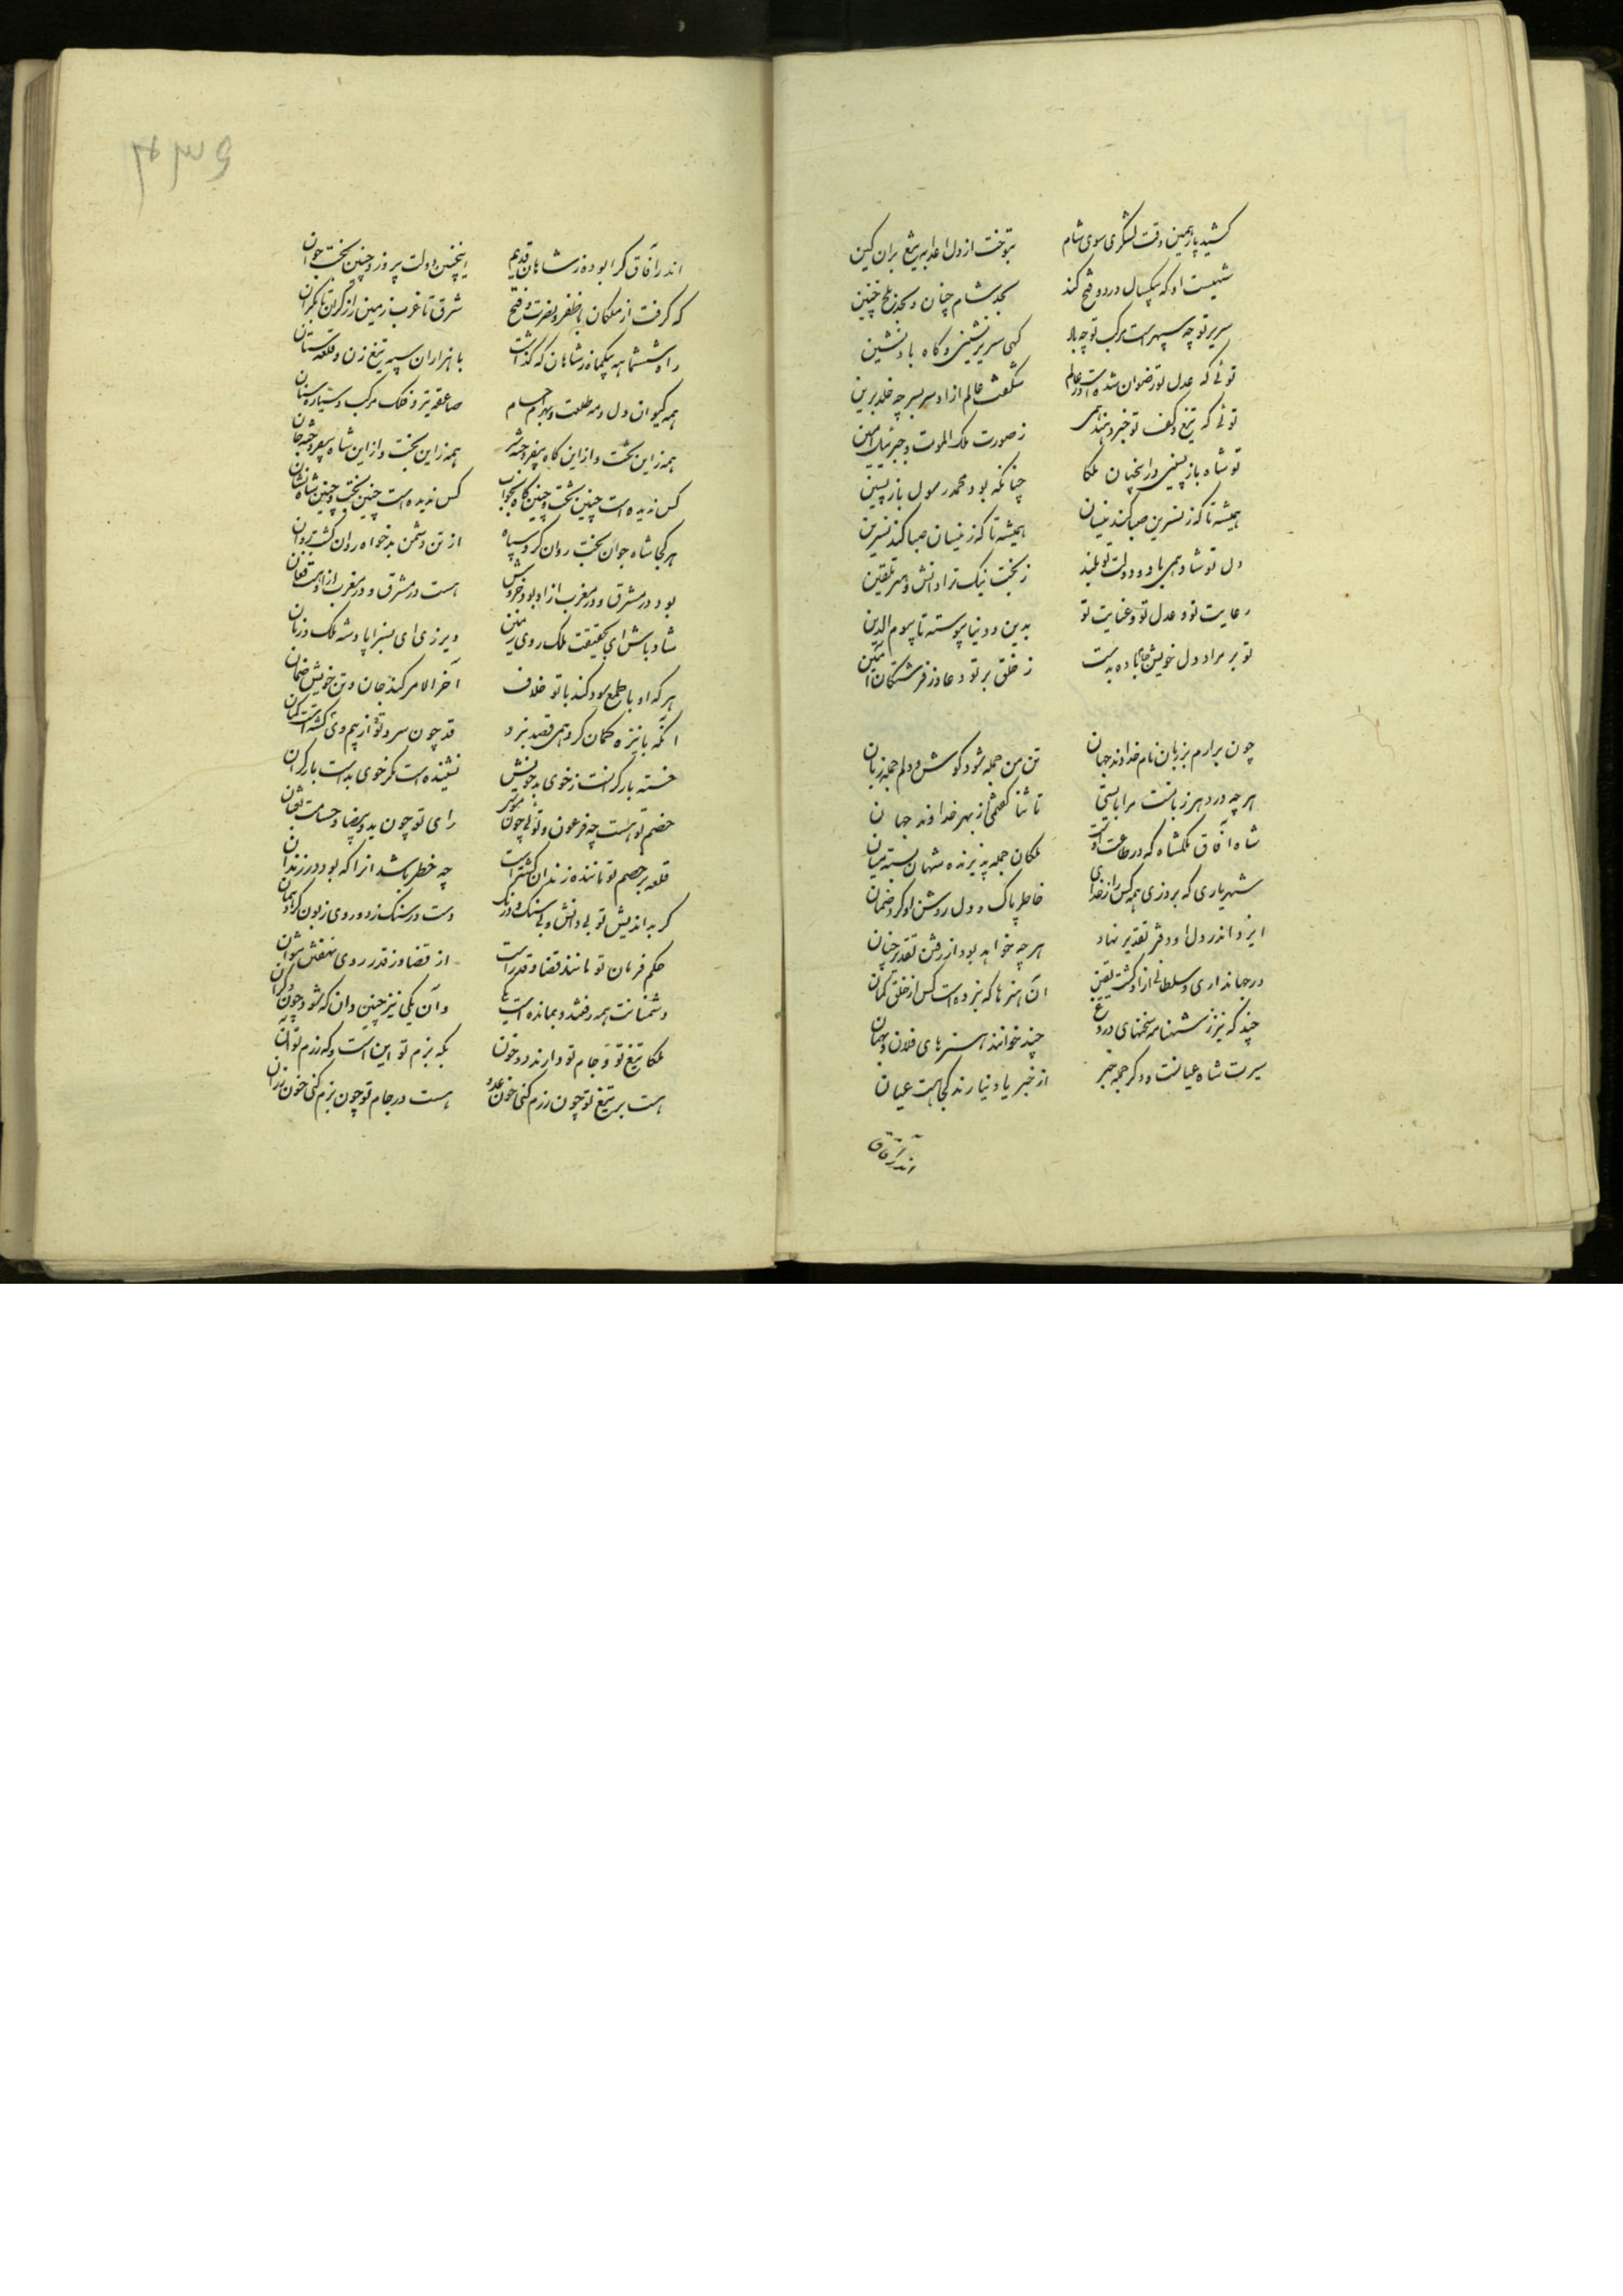 کشید پار همین وقت لشکری سوی شام بتوخت از دل اعدا به تیغ بران کین
شهیست او که بیکسال در دو فتح کند بحد شام چنان و بحد بلخ چنین
سریر تو چه سپهر است مرکب تو چه باد کهی سریر نشینی و کاه باد نشین
توئی که عدل تو رضوان شده است در عالم شکفت عالم ازاو سر بسر چه خلد برین
توئی که تیغ و کف تو خبر دهند همی ز صورت ملک الموت و جبرئیل امین
تو شاه باز پسینی در این جهان ملکا چنانکه بود محمد رسول باز پسین
همیشه تا که ز نسرین صبا کند نیسان همیشه تا که ز نیسان صبا کند نسرین
دل تو شاد همی باد و دولت تو بلند ز بخت نیک ترا دانش و هنر تلقین
رعایت تو و عدل تو و عنایت تو بدین و دنیا پیوسته تا بیوم الدین
تو بر مراد دل خویش جام باده بدست ز خلق بر تو دعا وز فرشتکان آمین
چون برارم بزبان نام خداوند جهان تن من جمله شود کوش و دلم جمله زبان
هر چه در دهر زبانست مرا بایستی تا ثنا کفتمی از بهر خداوند جهان
شاه آفاق ملکشاه که در طاعت اوست ملکان جمله پذیرنده شهان بسته میان
شهریاری که بروزی همه کس را ز خدای خاطر پاک و دل روشن او کرد ضمان
ایزد اندر دل او دفتر تقدیر نهاد هر چه خواهد بود از رفتن تقدیر چنان
در جهانداری و سلطانی ازاو کشت یقین آن هنرها که نبرده است کس از خلق کمان
چند کویند ز شهنامه سخنهای دروغ چند خوانند هنرهای فلان و بهمان
سیرت شاه عیانست و دکر جمله خبر از خبر یاد نیارند کجا هست عیان
اندر آفاق
۴۳۶
اندر آفاق کرا بوده ز شاهان قدیم اینچنین دولت پیروز و چنین بخت جوان
که کرفت از ملکان با ظفر و نصرت و فتح شرق تا غرب زمین را ز کران تا بکران
راه ششماهه بیکماه ز شاهان که کذاشت با هزاران سپه تیغ زن و قلعه ستان
همه کیوان دل و مه طلعت و بهرام حسام صاعقه تیر و فلک مرکب و سیاره سنان
همه زاین تخت و از این کاه بیفروخته سر همه زاین بخت و از این شاه بیفروخته جان
کس ندیده است چنین تخت و چنین کاه بخواب کس ندیده است چنین بخت و چنین شاه نشان
هر کجا شاه جوان بخت روان کرد سپاه از تن دشمن بدخواه روان کشت روان
بود در مشرق و در مغرب ازاو بود خروش هست در مشرق و در مغرب ازاو هست فغان
شاد باش ای بحقیقت ملک روی زمین دیر زی ای بسزا پادشه ملک و زمان
هر که او با طمع سود کند با تو خلاف آخر الامر کند جان و تن خویش ضمان
آنکه با نیزه و کمان کرد همی قصد نبرد قد چون سرو تو از بیم وی کشته است کمان
خسته بار کرانست ز خوی بد خویش نشنیده است مکر خوی بد است بار کران
خصم تو هست چه فرعون و توئی چون موسی رای تو چون ید بیضا و حسامت ثعبان
قلعه بر خصم تو ماننده زندان کشته است چه خطر باشد آنرا که بود در زندان
کر بد اندیش تو بی دانش و بی سنک و درنک دست در سنک زد و روی زبون کرد نهان
حکم فرمان تو مانند قضا و قدر است از قضا وز قدر روی نهفتن نتوان
دشمنانت همه رفتند و بمانده است یکی وان یکی نیز چنین دان که شود چون دکران
ملکا تیغ تو و جام تو دارند دو خون که بزم تو این است و که رزم تو آن
هست بر تیغ تو چون رزم کنی خون عدو هست در جام تو چون بزم کنی خون رزان